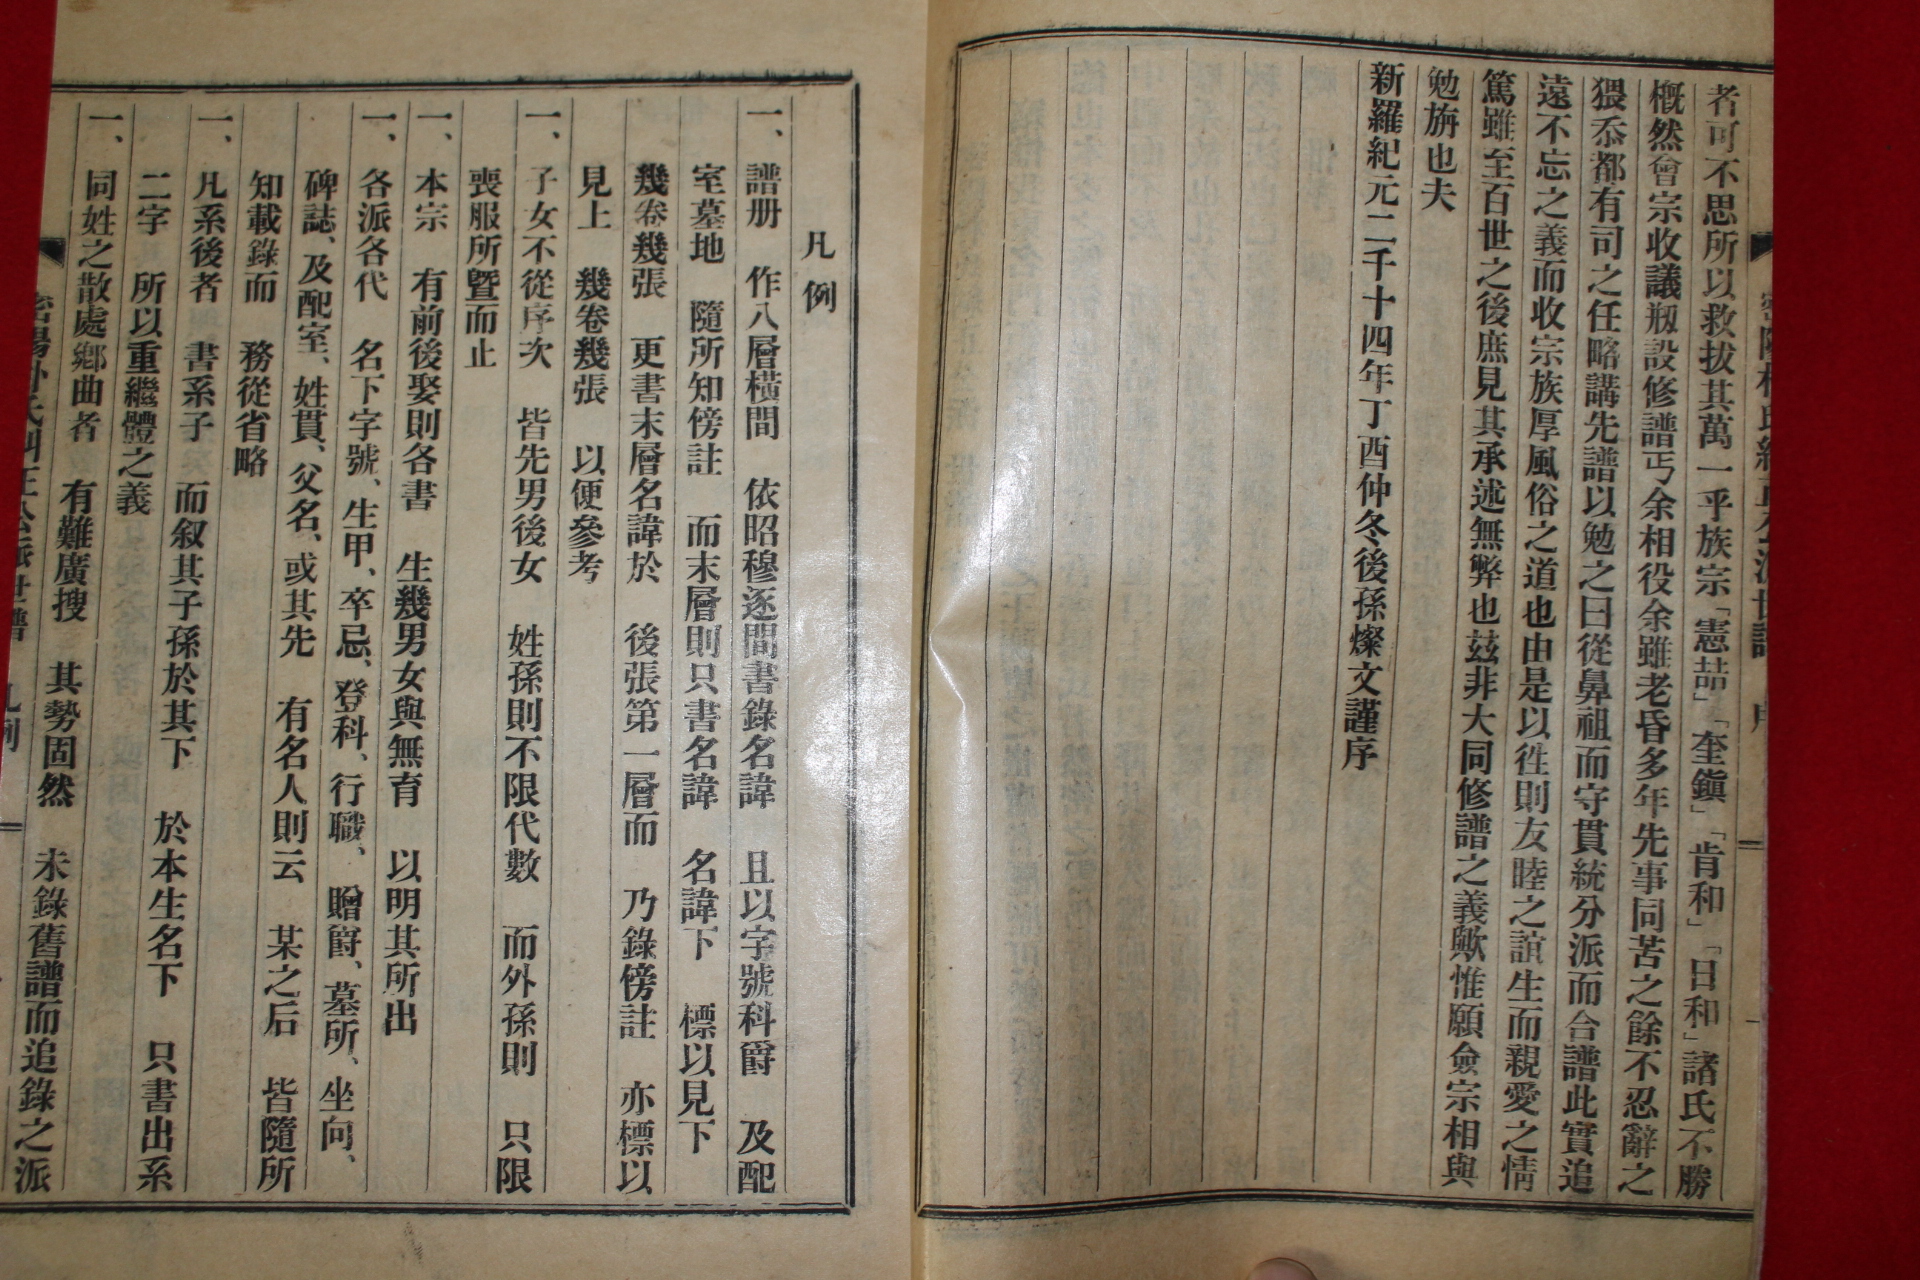 者可不思所以救拔其萬一乎族宗「憲喆」「奎鎭」「肯和」「日和」諸氏不勝
慨然會宗收議剏設修譜丐余相役余雖老昏多年先事同苦之餘不忍辭之
猥忝都有司之任略講先譜以勉之曰從鼻祖而守貫統分派而合譜此實追
遠不忘之義而收宗族厚風俗之道也由是以徃則友睦之誼生而親愛之情
篤雖至百世之後庶見其承述無弊也玆非大同修譜之義歟惟願僉宗相與
勉旃也夫
新羅紀元二千十四年丁酉仲冬後孫燦文謹序
凡例
一、譜册 作八層橫間 依昭穆逐間書錄名諱 且以字號科爵 及配
室墓地 隨所知傍註 而末層則只書名諱 名諱下 標以見下
幾卷幾張 更書末層名諱於 後張第一層而 乃錄傍註 亦標以
見上 幾卷幾張 以便參考
一、子女不從序次 皆先男後女 姓孫則不限代數 而外孫則 只限
喪服所曁而止
一、本宗 有前後娶則各書 生幾男女與無育 以明其所出
一、各派各代 名下字號、生甲、卒忌、登科、行職、贈爵、墓所、坐向、
碑誌、及配室、姓貫、父名、或其先 有名人則云 某之后 皆隨所
知載錄而 務從省略
一、凡系後者 書系子 而叙其子孫於其下 於本生名下 只書出系
二字 所以重繼體之義
一、同姓之散處鄕曲者 有難廣搜 其勢固然 未錄舊譜而追錄之派